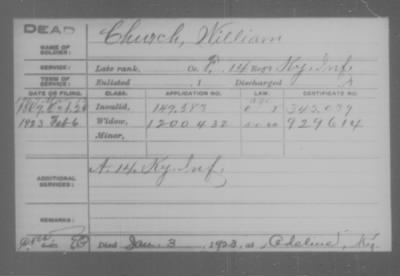 DEAD
NAME OF SOLDIER: Church, William
SERVICE: Late rank, Co. F, 14 Reg't Ky. Inf.
TERM OF SERVICE: Enlisted , 1 Discharged , 1
DATE OF FILING. CLASS. APPLICATION NO. LAW. CERTIFICATE NO.
Invalid, 343,039
1923 Feb 6 Widow, 1200432 929614
Minor,
ADDITIONAL SERVICES: A. 14. Ky. Inf.
REMARKS:
Died Jan. 3, 1923, at Adeline, Ky.